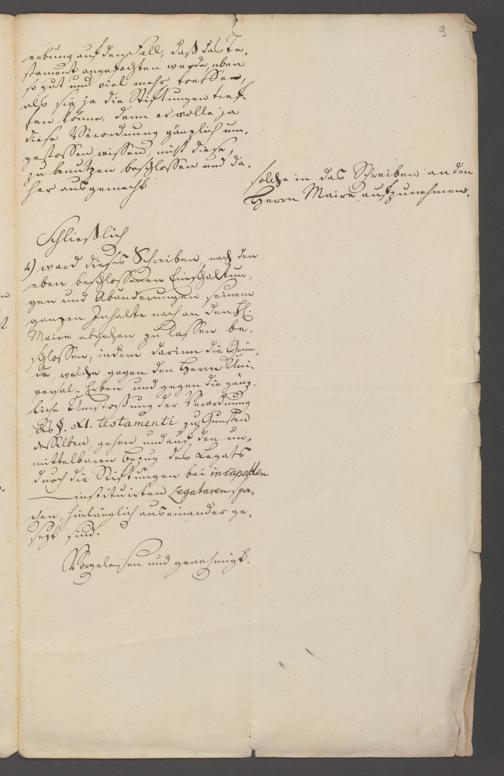 9
erbung auf den Fall, daß das Te-
stament angefochten werde, eben
so gut und viel mehr treffe,
als sie ja die Stiftungen tref-
fen könne, denn er wolle ja
diese Verordnung gänzlich um-
gestossen wissen, mit diese,
zu benutzen beschlossen und da-
her ausgemacht
solche in das Schreiben an den
Herrn Maire aufzunehmen.
Schließlich
4) ward dieses Schreiben, nach den
eben beschlossenen Einschaltun-
gen und Abänderungen seinem
ganzen Inhalte nach an den H:
Maire abgehen zu lassen be-
schlossen, indem darinn die Grün-
de, welche gegen den Herrn Uni-
versal-Erben und gegen die gänz-
liche Umstossung der Verordnung
des §. XI. testamenti zu Gunsten
desselben gehen und auf den un-
mittelbaren Bezug des Legats
durch die Stiftungen bei incapablen
instituirten Legataren spre-
chen, hinlänglich auseinander ge-
setzt sind.
Vorgelesen und genehmigt.